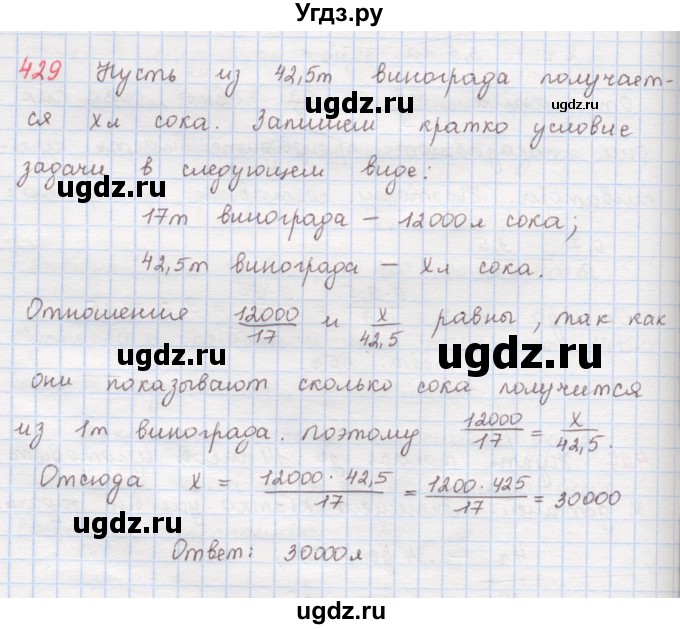 Угдз.ру
429 Пусть из 42,5т винограда получает-
ся хл сока. Запишем кратко условие
задачи в следующем виде:
17т винограда – 12000л сока;
42,5т винограда – хл сока.
Отношения 12000/17 и х/42,5 равны, так как
они показывают сколько сока получится
из 1т винограда. Поэтому 12000/17 = х/42,5.
Отсюда х = 12000·42,5/17 = 1200·425/17 = 30000
Ответ: 30000л
ugdz.ru
ugdz.ru
ugdz.ru
ugdz.ru
ugdz.ru
ugdz.ru
ugdz.ru
ugdz.ru
ugdz.ru